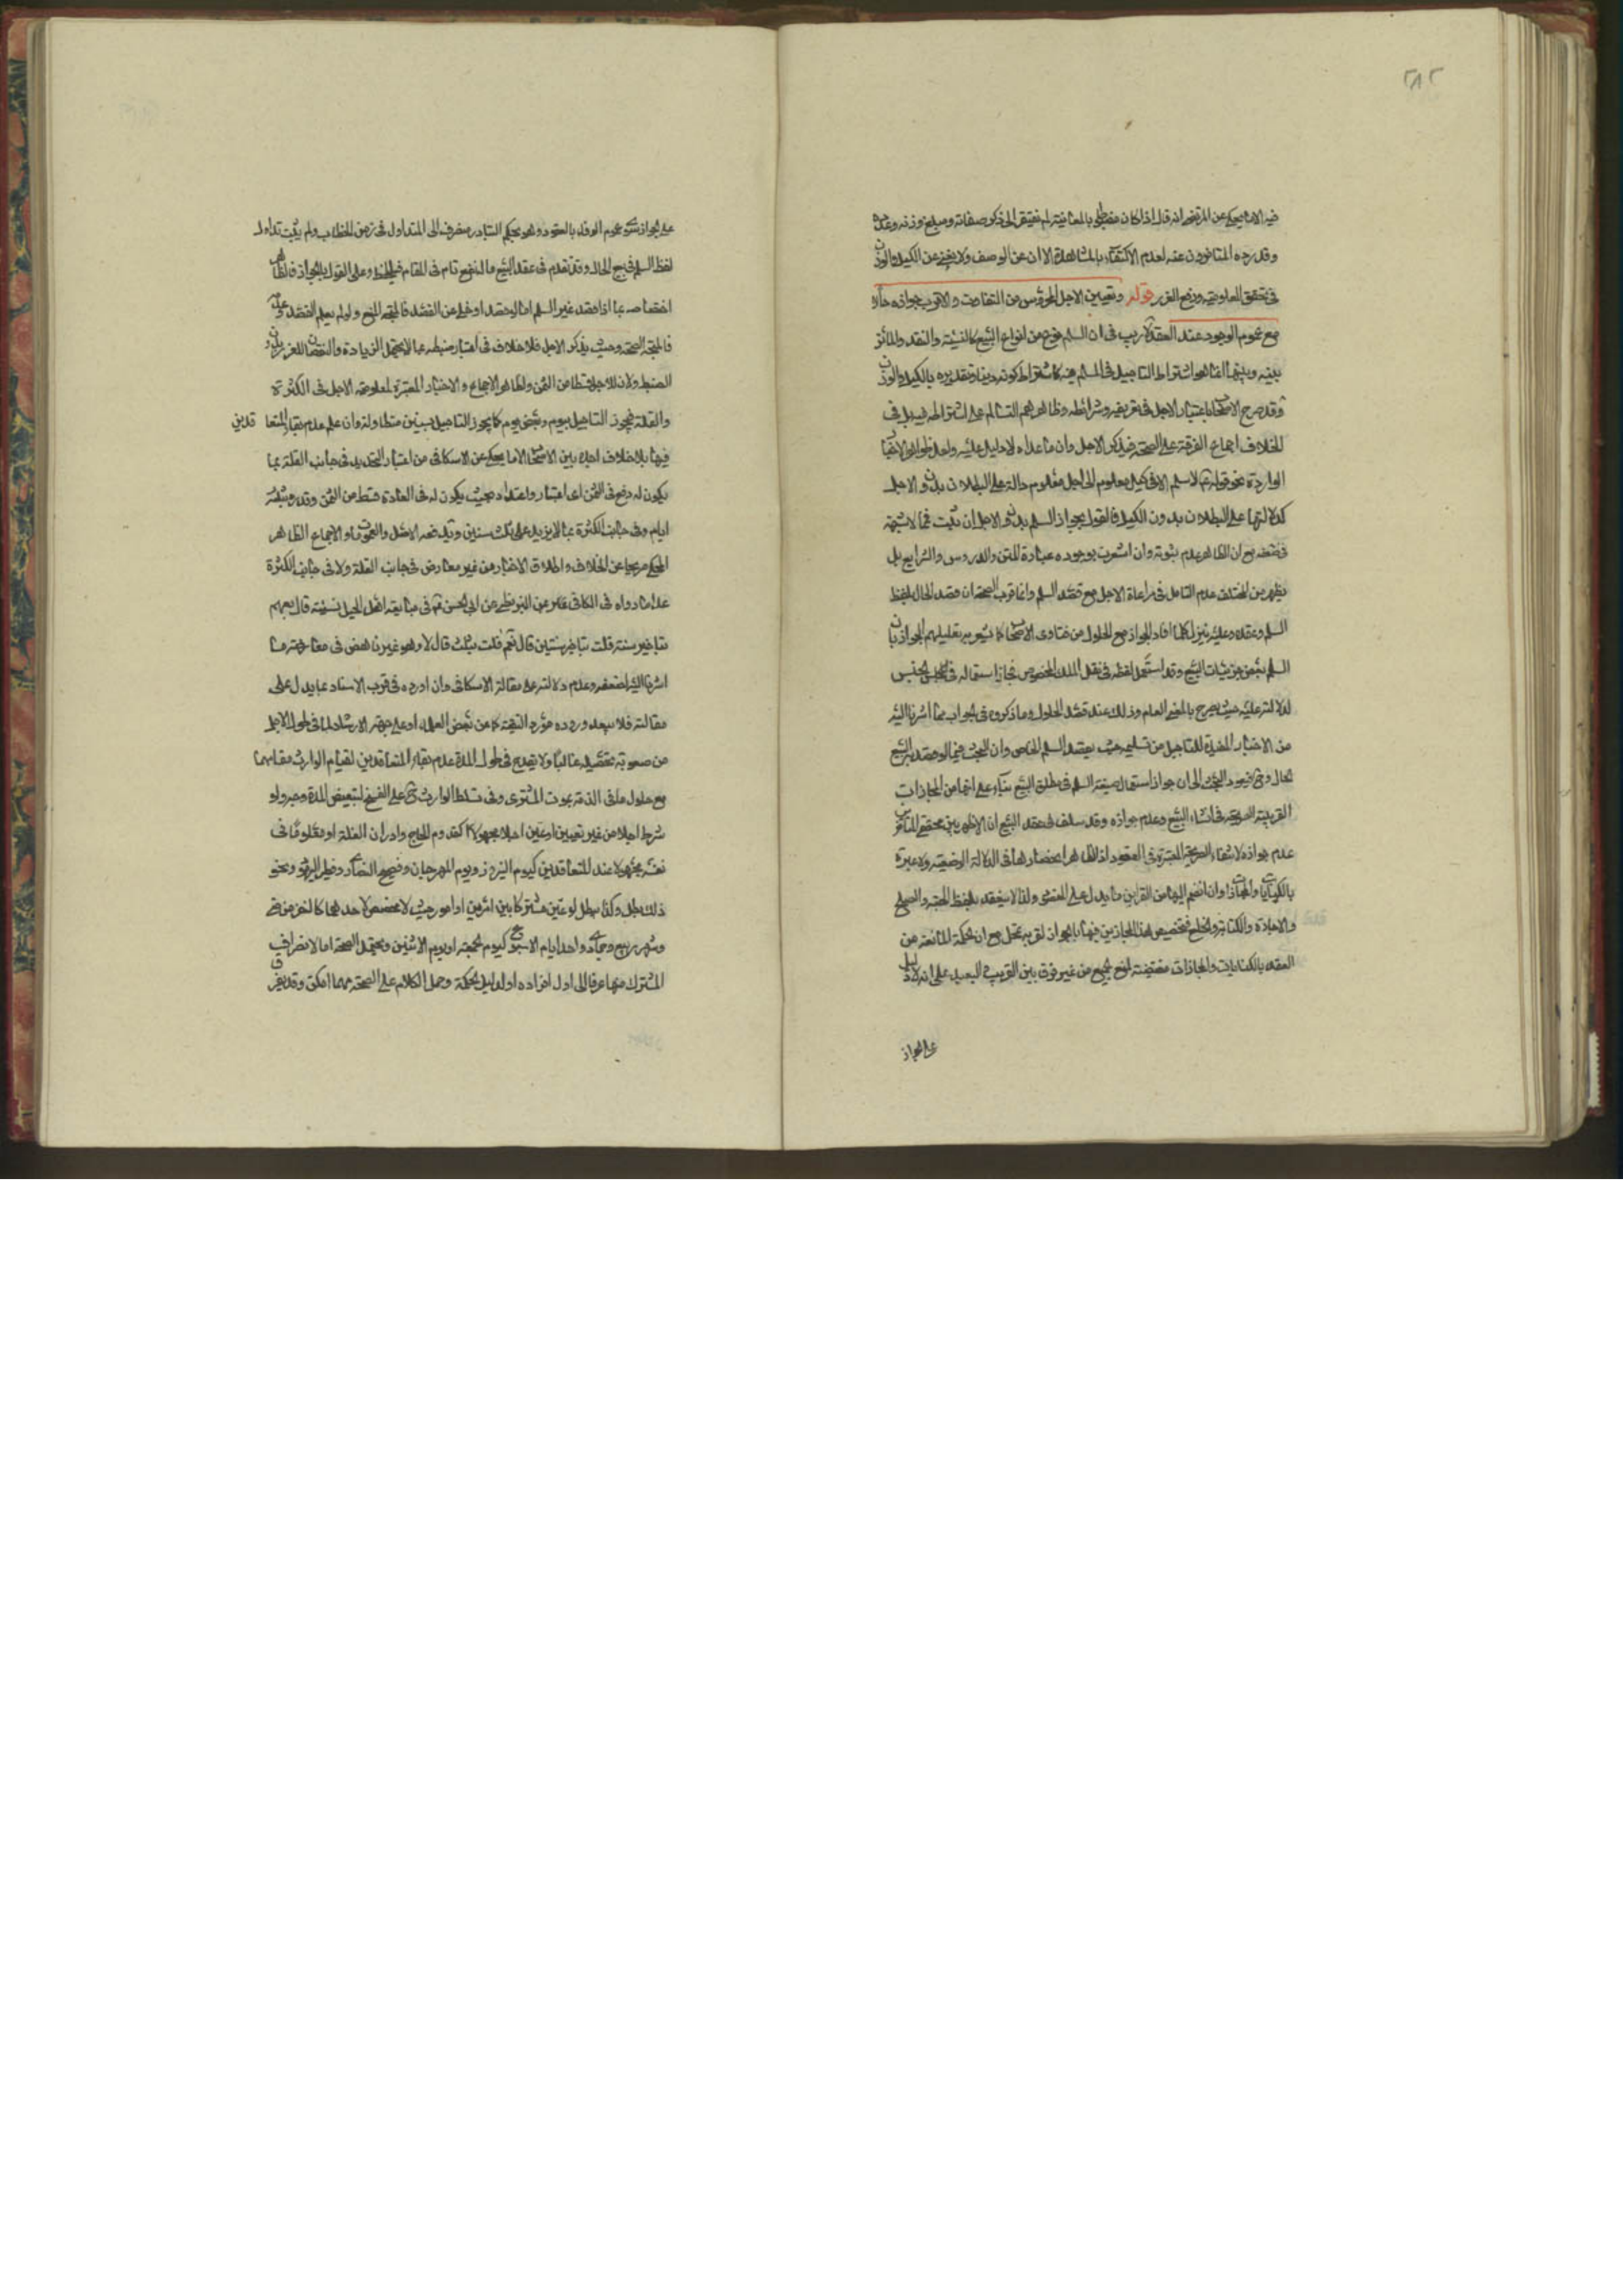 ٢٨٢
فيه الا ما يحكى عن المرتضى انه قال اذا كان مضبوطا بالمعاينة لم يفتقر الى ذكر صفاته ومبلغ وزنه وعدده
وقد رده المتاخرون عنه لعدم الاكتفاء بالمشاهدة الا ان عن الوصف ولا يغني عن الكيل والوزن
في تحقق المعلومية ورفع الغرر قوله وتعيين الاجل المحروس من التفاوت والاقرب جوازه حالا
مع عموم الوجود عند العقد لا ريب في ان السلم نوع من انواع البيع كالنسيئة والنقد والمائز
بينه وبينهما انما هو اشتراط التاجيل في المسلم فيه كاشتراط كونه دينا وتقديره بالكيل والوزن
وقد صرح الاصحاب باعتبار الاجل في تعريفه وشرائطه وظاهرهم التسالم على اشتراطه فيه بل في
الخلاف اجماع الفرقة على الصحة فيذكر الاجل وان ما عداه لا دليل عليه ولعل ظواهر الاخبار
الواردة نحو قوله ع لا سلم الا في كيل معلوم الى اجل معلوم دالة على البطلان بدون الاجل
كدلالتها على البطلان بدون الكيل فالقول بجواز السلم بدون الاجل ان ثبت فما لا شبهة
في ضعفه مع ان الظاهر عدم ثبوته وان اشعرت بوجوده عبارة المتن والدروس والشرايع بل
يظهر من المختلف عدم التامل في مراعاة الاجل مع قصد السلم وانما قرب الصحة ان قصد الحال بلفظ
السلم وعقده وعليه ينزل كلما افاد الجواز مع الحلول من فتاوى الاصحاب كما يشعر به تعليلهم الجواز بان
السلم بعض جزئيات البيع وقد استعمل لفظه في نقل الملك المخصوص فجاز استعماله في الجنس
لدلالته عليه حيث يصرح بالمعنى العام وذلك عند قصد الحلول وما ذكروه في الجواب عما اشرنا اليه
من الاخبار المفيدة للتاجيل من تسليمه حيث يقصد السلم الخاص وان البحث فيما لو قصد به البيع
الحال وح فيعود البحث الى ان جواز استعمال صيغة السلم في مطلق البيع بناء على انها من المجازات
القريبة الصريحة في انشاء البيع وعدم جوازه وقد سلف في عقد البيع ان الاظهر بين محققي المتاخرين
عدم جوازه لانتفاء الصريحة المعتبرة في العقود اذ الظاهر انحصارها في الدلالة الوضعية ولا عبرة
بالكنايات والمجازات وان انضم اليها من القراين ما يدل على المقصود ولذا لا ينعقد بلفظ الهبة والصلح
والاجارة والكتابة والخلع فتخصيص هذا المجاز من بينها بالجواز لقربه تحكم مع ان الحكمة المانعة من
العقد بالكنايات والمجازات مقتضية لمنع الجميع من غير فرق بين القريب والبعيد على انه لا دليل
على الجواز
على الجواز سوى عموم الوفاء بالعقود وهو بحكم التبادر منصرف الى المتداول في زمن الخطاب ولم يثبت تداول
لفظ السلم في بيع الحال وقد تقدم في عقد البيع ما له نفع تام في المقام فليلحظ وعلى القول بالجواز فالظاهر
اختصاصه بما اذا قصد غير السلم اما لو قصد او خلى عن القصد فالمتجه المنع ولو لم يعلم القصد وعدمه
فالمتجه الصحة وحيث يذكر الاجل فلا خلاف في اعتبار ضبطه بما لا يحتمل الزيادة والنقصان للغرر بدون
الضبط ولان للاجل قسطا من الثمن ولظاهر الاجماع والاخبار المعتبرة لمعلومية الاجل في الكثرة
والقلة فيجوز التاجيل بيوم وببعض يوم كما يجوز التاجيل بسنين متطاولة وان علم عدم بقاء المتعاقدين
فيها بلا خلاف اجده بين الاصحاب الا ما يحكى عن الاسكافي من اعتبار التحديد في جانب القلة بما
يكون له وقع في الثمن اى اعتبار واعتداد بحيث يكون له في العادة قسط من الثمن وقدره بثلاثة
ايام وفي جانب الكثرة بما لا يزيد على ثلث سنين ويدفعه الاصل والعمومات والاجماع الظاهر
المحكي صريحا عن الخلاف واطلاق الاخبار من غير معارض في جانب القلة ولا في جانب الكثرة
عدا ما رواه في الكافي عن البزنطي عن ابي الحسن ع في متابعة اهل الجبل نسيئة قال بعهم
بتاخير سنة قلت بتاخير سنتين قال نعم قلت بثلث قال لا وهو غير ناهض في معارضة ما
اشرنا اليه لضعفه وعدم دلالته على مقالة الاسكافي وان اورده في قرب الاسناد بما يدل على
مقالته فلا يبعد وروده مورد التقية كما من بعض العامة او على جهة الارشاد لما في طول الاجل
من صعوبة تحصيله غالبا ولا يقدح في طول المدة عدم بقاء المتعاقدين لقيام الوارث مقامهما
مع حلول ما في الذمة بموت المشتري وفي تسلط الوارث ح على الفسخ لتبعيض المدة وجه ولو
شرط اجلا من غير تعيين او عين اجلا مجهولا كقدوم الحاج وادراك الغلة او معلوما في
نفسه مجهولا عند المتعاقدين كيوم النيروز ويوم المهرجان وفصح النصارى وفطر اليهود ونحو
ذلك بطل وكذا يبطل لو عين مشتركا بين امرين او امور حيث لا مخصص لاحدهما كالنفر من منى
وشهر ربيع وجمادى واحد ايام الاسبوع كيوم الجمعة او يوم الاثنين ويحتمل الصحة اما لانصراف
المشترك منها عرفا الى اول افراده او لدليل الحكمة وحمل الكلام على الصحة مهما امكن وقد يفرق